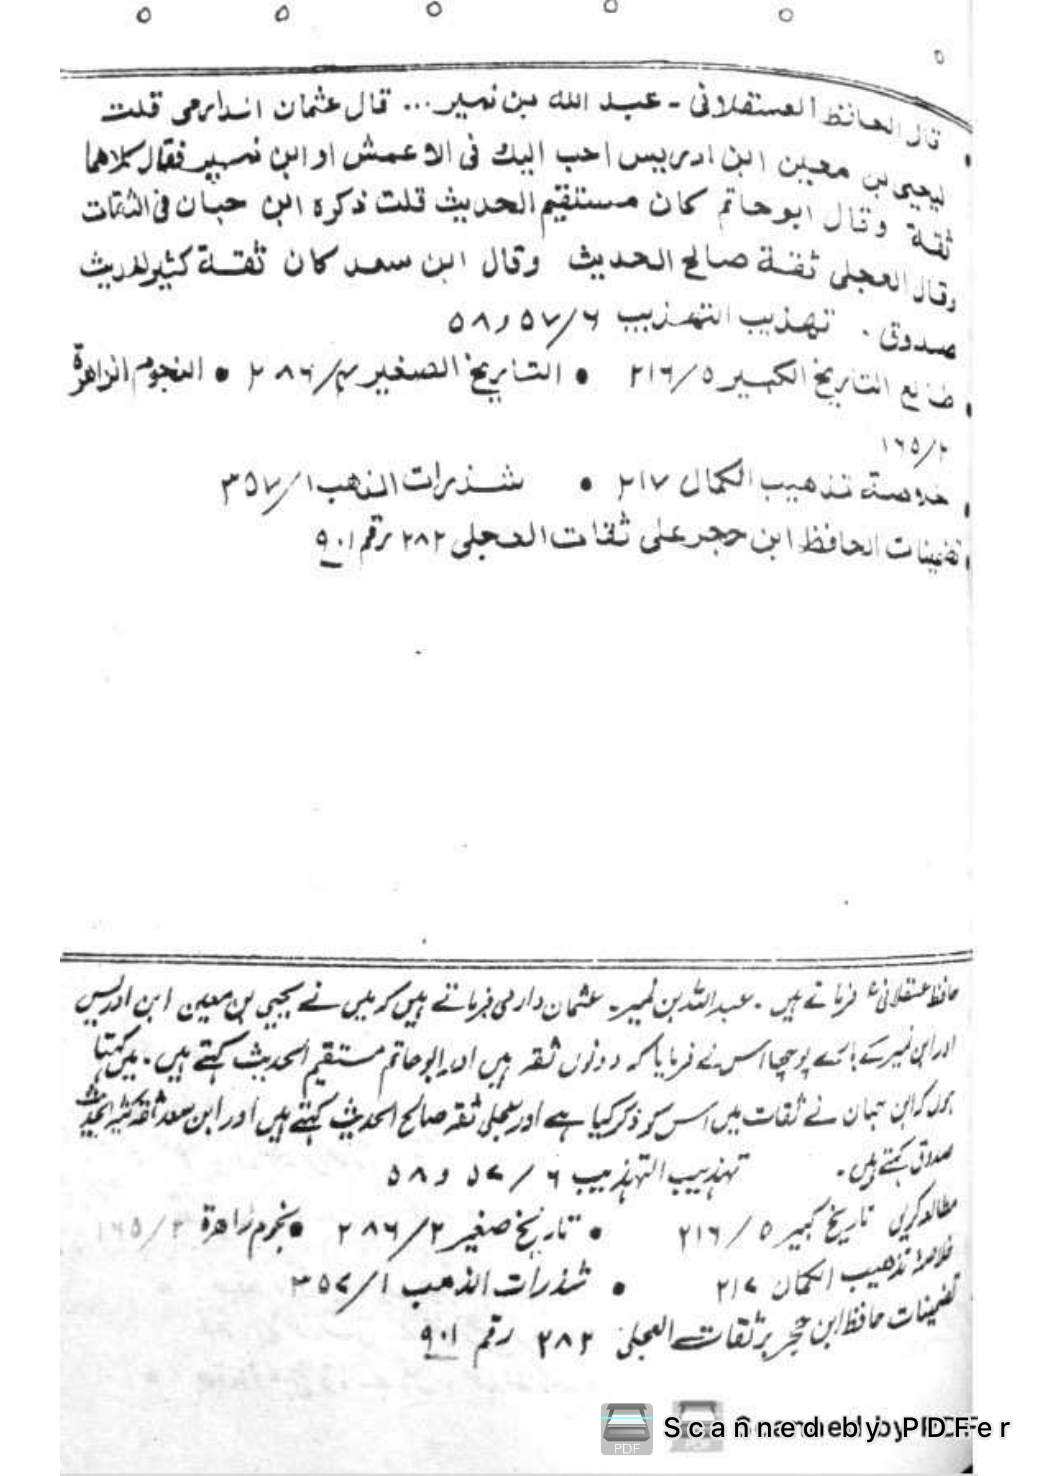 قال الحافظ العسقلانی - عبد الله بن نمیر ... قال عثمان الدارمی قلت
لیحیی بن معین ابن ادریس احب الیك فی الاعمش او ابن نمیر فقال كلاهما
ثقة وقال ابو حاتم كان مستقیم الحدیث قلت ذكره ابن حبان فی الثقات
وقال العجلی ثقة صالح الحدیث وقال ابن سعد كان ثقة كثیر الحدیث
صدوق . تهذیب التهذیب ۶/۵۷ و ۵۸
• طالع التاریخ الكبیر ۵/۲۱۶ • التاریخ الصغیر ۲/۲۸۶ • النجوم الزاهرة
۲/۱۶۵
• خلاصة تذهیب الكمال ۲۱۷ • شذرات الذهب ۱/۳۵۷
• تضمینات الحافظ ابن حجر علی ثقات العجلی ۲۸۲ رقم ۹۰۱
حافظ عسقلانیؒ فرماتے ہیں - عبداللہ بن نمیر - عثمان دارمی فرماتے ہیں کہ میں نے یحییٰ بن معین ابن ادریس
اور ابن نمیر کے بارے پوچھا اس نے فرمایا کہ دونوں ثقہ ہیں اور ابو حاتم مستقیم الحدیث کہتے ہیں - میں کہتا
ہوں کہ ابن حبان نے ثقات میں اس کو ذکر کیا ہے اور عجلی ثقہ صالح الحدیث کہتے ہیں اور ابن سعد ثقہ کثیر الحدیث
صدوق کہتے ہیں - تہذیب التہذیب ۶ / ۵۷ و ۵۸
مطالعہ کریں تاریخ کبیر ۵ / ۲۱۶ • تاریخ صغیر ۲/۲۸۶ • نجوم زاهرة ۲/۱۶۵
خلاصۃ تذهیب الکمال ۲۱۷ • شذرات الذهب ۱/۳۵۷
تضمینات حافظ ابن حجر بر ثقات العجلی ۲۸۲ رقم ۹۰۱
PDF
Scanned by PDFer